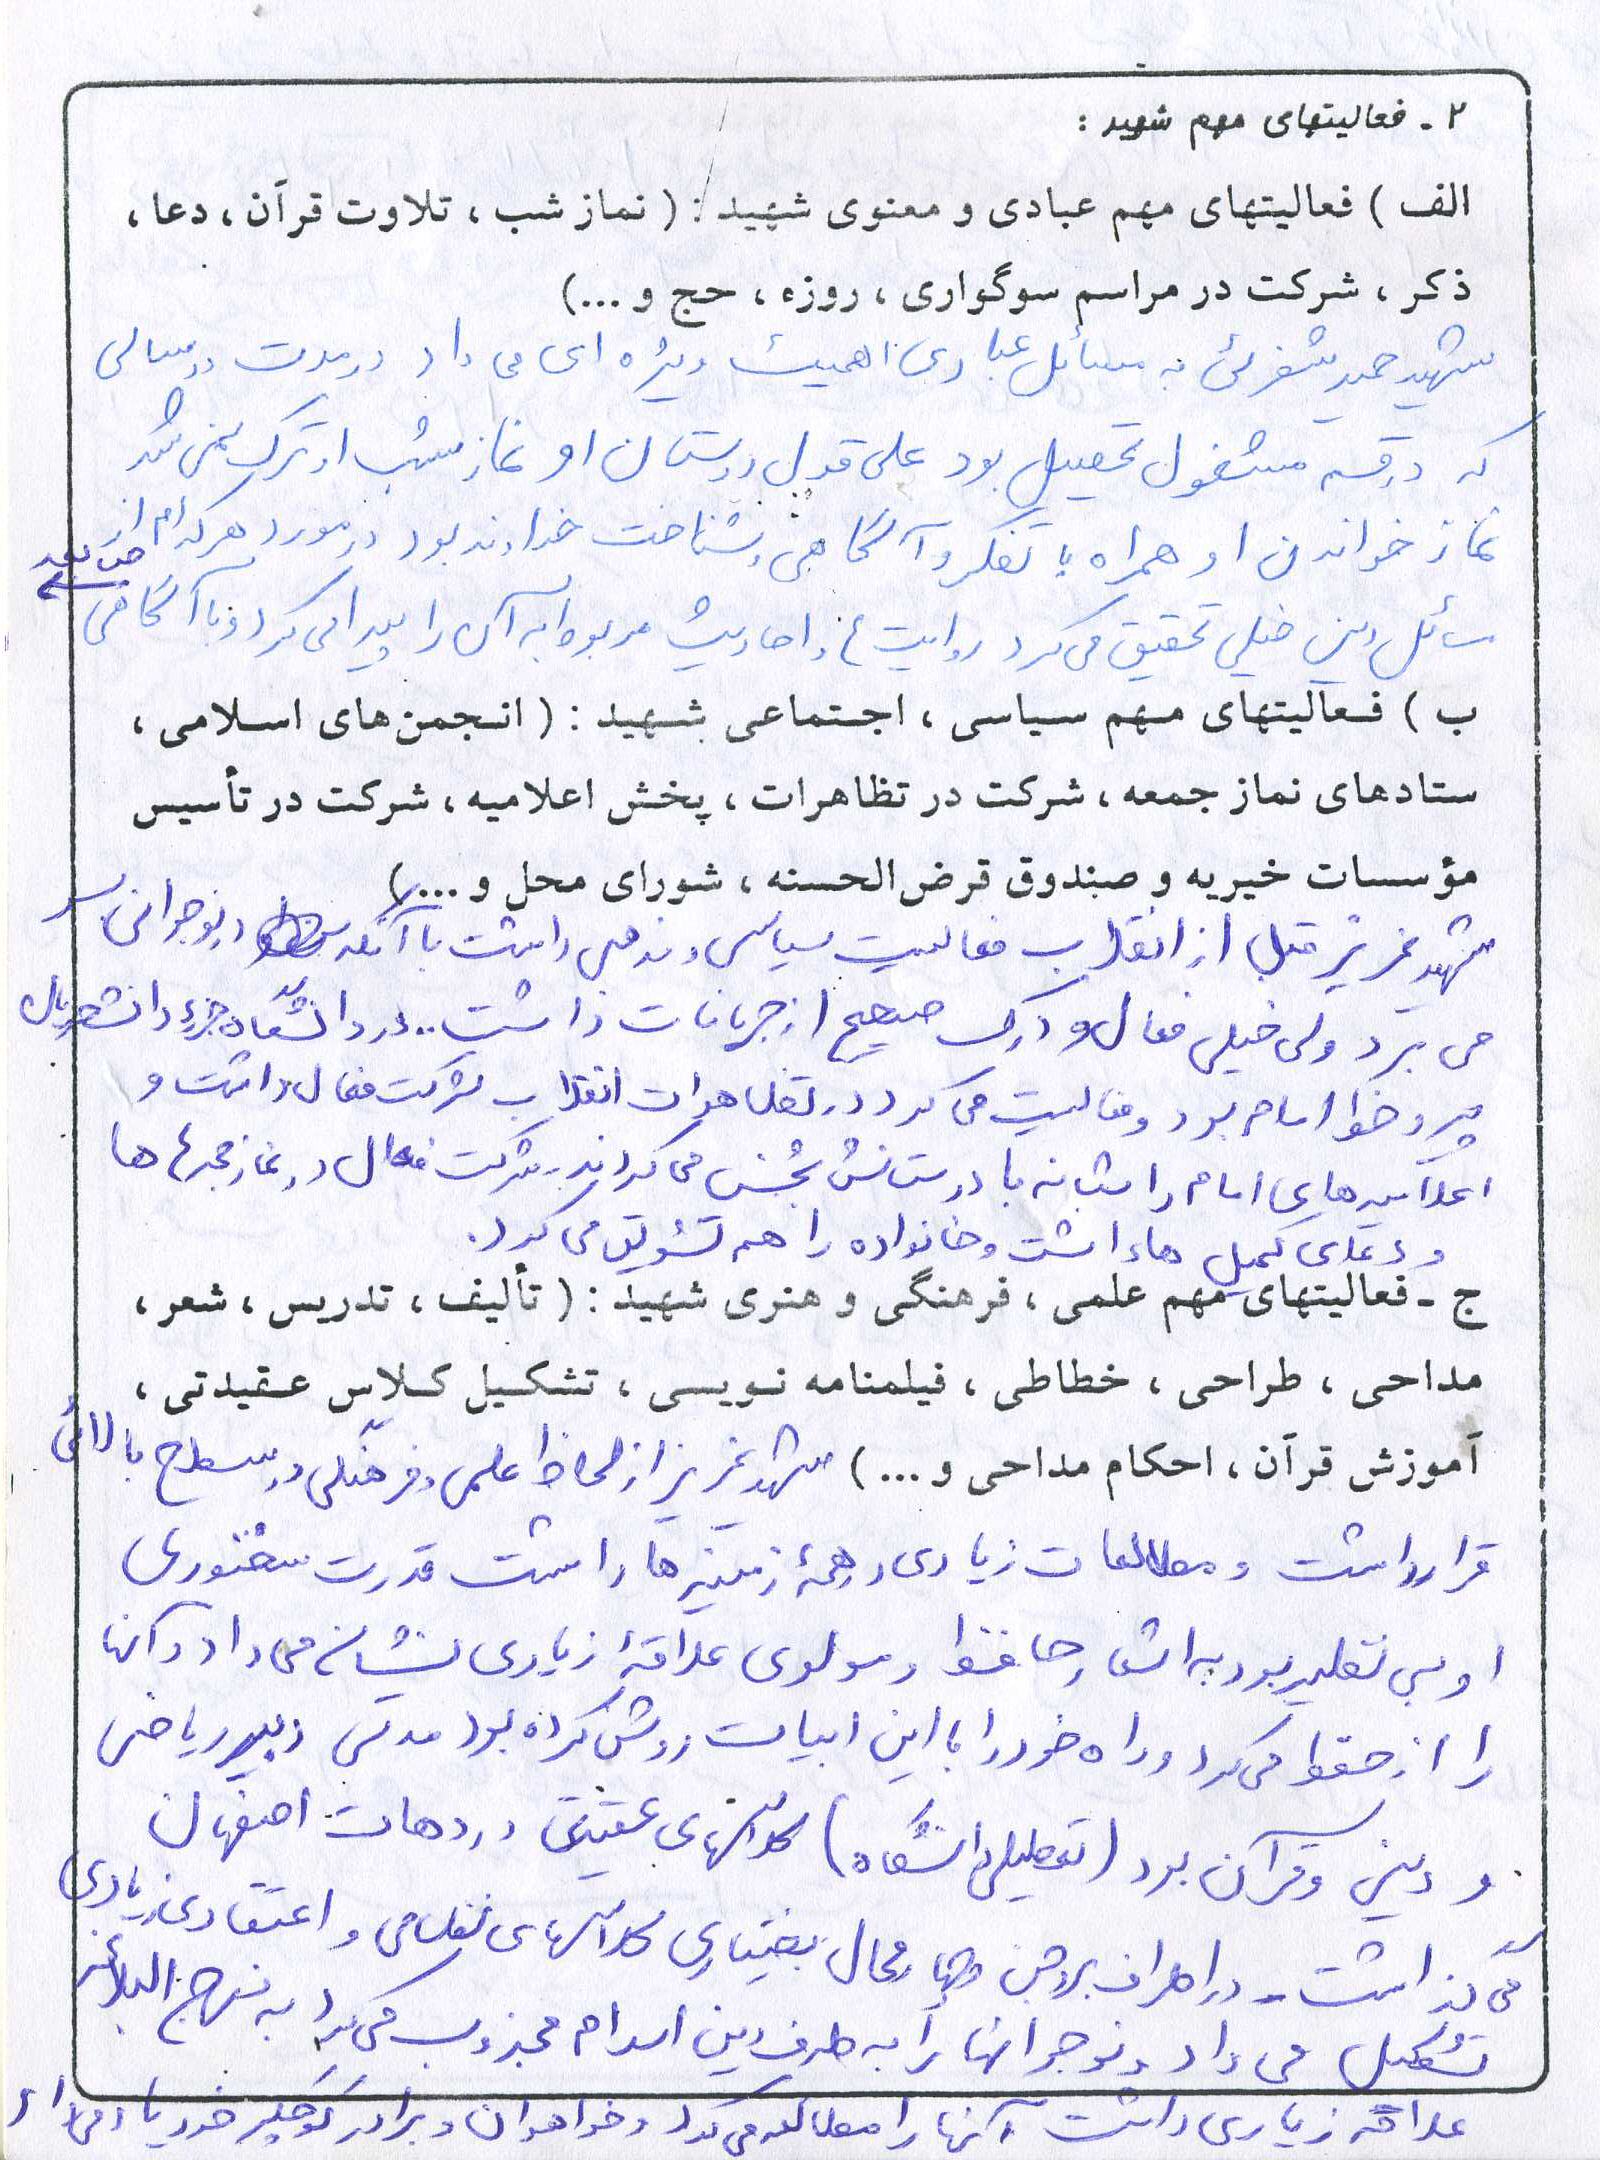 ۲ ـ فعالیتهای مهم شهید :
الف ) فعالیتهای مهم عبادی و معنوی شهید : ( نماز شب ، تلاوت قرآن ، دعا ،
ذکر ، شرکت در مراسم سوگواری ، روزه ، حج و ...)
شهید حمید به مسائل عبادی اهمیت ویژه ای می داد در مدت دو سالی
که در قسم مشغول تحصیل بود علی قول دوستان او نماز شب او ترک نمی شد
نماز خواندن او همراه با تفکر و آگاهی و شناخت خداوند بود در مورد هر کدام از
ص بعد
مسائل دینی خیلی تحقیق می کرد روایت ها و احادیث مربوط به آن را پیدا می کرد و با آگاهی
ب ) فعالیتهای مهم سیاسی ، اجتماعی شهید : ( انجمن‌های اسلامی ،
ستادهای نماز جمعه ، شرکت در تظاهرات ، پخش اعلامیه ، شرکت در تأسیس
مؤسسات خیریه و صندوق قرض‌الحسنه ، شورای محل و ...)
شهید عزیز قبل از انقلاب فعالیت سیاسی و مذهبی داشت با آنکه در نوجوانی بسر
می برد ولی خیلی فعال و درک صحیح از جریانات داشت .. در دانشگاه جزء دانشجویان
پیرو خط امام بود و فعالیت می کرد در تظاهرات انقلاب شرکت فعال داشت و
اعلامیه های امام را شبانه با دوستانش پخش می کردند . شرکت فعال در نماز جمعه ها
و دعای کمیل ها داشت و خانواده را هم تشویق می کرد .
ج ـ فعالیتهای مهم علمی ، فرهنگی و هنری شهید : ( تألیف ، تدریس ، شعر ،
مداحی ، طراحی ، خطاطی ، فیلمنامه نویسی ، تشکیل کلاس عقیدتی ،
آموزش قرآن ، احکام مداحی و ... ) شهید عزیز از لحاظ علمی و فرهنگی در سطح بالائی
قرار داشت و مطالعات زیادی در همهٔ زمینه ها داشت قدرت سخنوری
او بی نظیر بود به اشعار حافظ و مولوی علاقهٔ زیادی نشان می داد و آنها
را از حفظ می کرد و راه خود را با این ابیات روشن کرده بود مدتی دبیر ریاضی
و دینی و قرآن بود ( تعطیلی دانشگاه ) کلاسهای عقیدتی در دهات اصفهان
می گذاشت - در اطراف بروجن و چهار محال بختیاری کلاسهای نظامی و اعتقادی زیادی
تشکیل می داد و نوجوانها را به طرف دین اسلام مجذوب می کرد به نهج البلاغه
علاقه زیادی داشت و آنها را مطالعه می کرد و خواهران و برادر کوچکتر خود یاد می داد